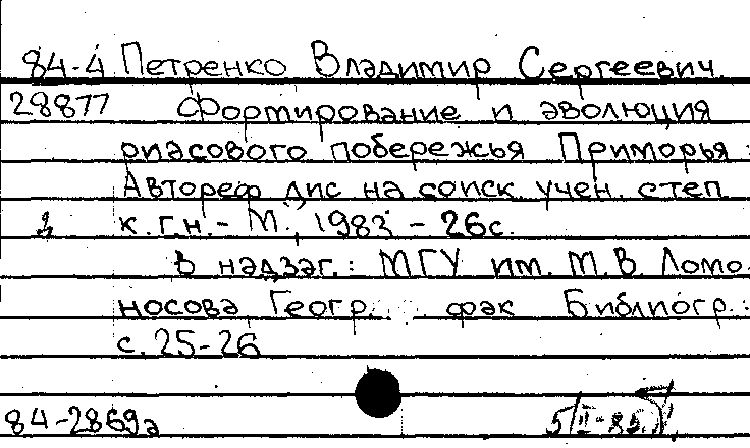 84-4 Петренко Владимир Сергеевич
28877 Формирование и эволюция
риасового побережья Приморья:
Автореф дис на соиск учен. степ
к.г.н. - М., 1983 - 26с.
В надзаг.: МГУ им. М.В Ломо
носова, Геогр. фак Библиогр.:
с. 25-26
84-2869а